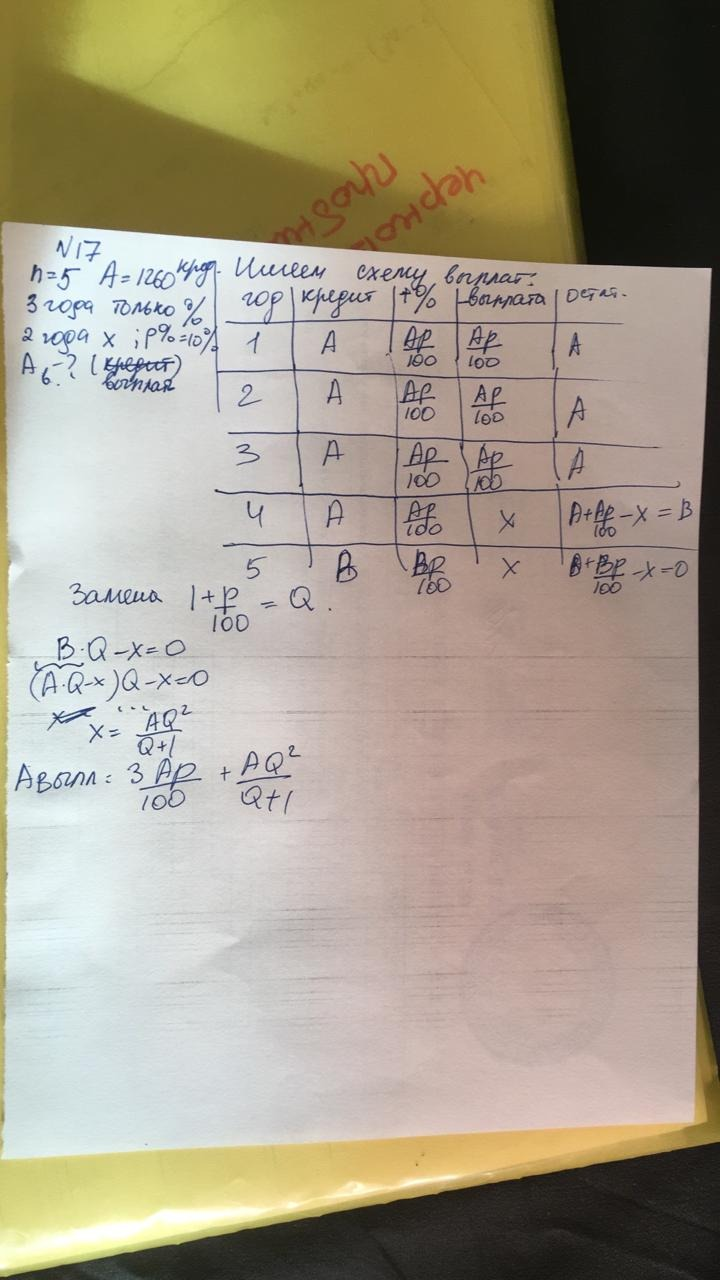 N17
n=5 A=1260 кред.
3 года только %
2 года x ; p%=10%
Aв.-? (кредит)
выплат
Имеем схему выплат:
год | кредит | +% | -выплата | остат.
1 | A | Ap/100 | Ap/100 | A
2 | A | Ap/100 | Ap/100 | A
3 | A | Ap/100 | Ap/100 | A
4 | A | Ap/100 | x | A+Ap/100-x=B
5 | B | Bp/100 | x | B+Bp/100-x=0
Замена 1+p/100=Q.
B·Q-x=0
(A·Q-x)Q-x=0
...
x=AQ²/Q+1
Aвыпл=3Ap/100+AQ²/Q+1